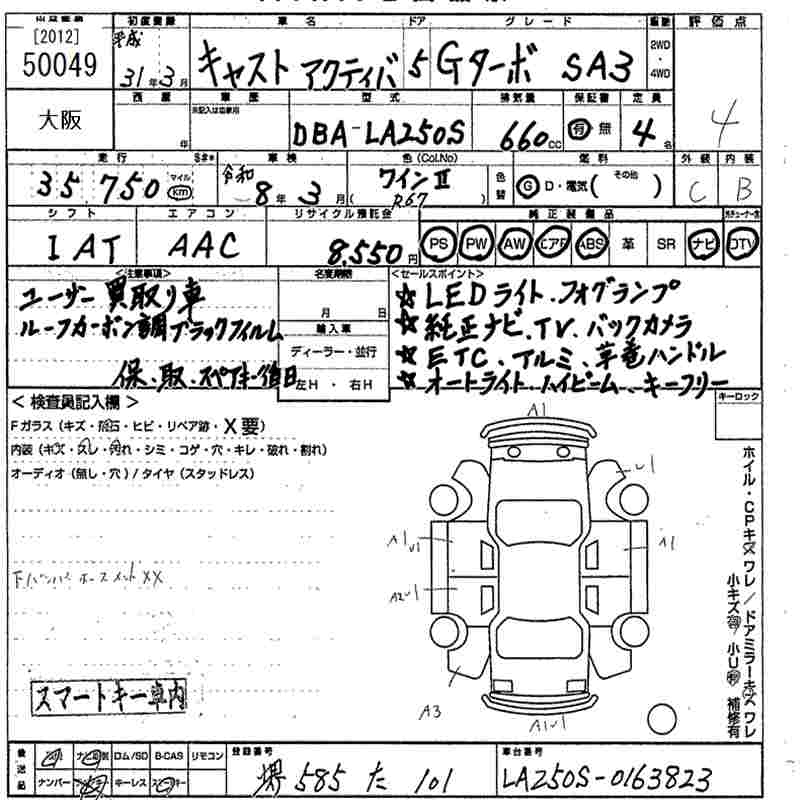 [2012] 初度登録 車名 ドア グレード 評価点
50049 平成 31年3月 キャスト アクティバ 5 Gターボ SA3 2WD・4WD
大阪 西暦 年 車歴 型式 排気量 保証書 定員 4
未記入は自家用 DBA-LA250S 660cc 有 無 4名
走行 S#* 車検 色(Col.No) 色替 燃料 外装 内装
35,750 マイル km 令和 8年3月 ワインⅡ (R67) G D・電気( その他 ) C B
シフト エアコン リサイクル預託金 純正装備品
IAT AAC 8,550円 PS PW AW エアB ABS 革 SR ナビ TV
<注意事項> 名変期限 <セールスポイント>
ユーザー買取り車 月 日 ☆LEDライト、フォグランプ
ルーフカーボン調ブラックフィルム 輸入車 ☆純正ナビ、TV、バックカメラ
ディーラー・並行 ☆ETC、アルミ、革巻ハンドル
保、取、スペアキー後日 左H・右H ☆オートライト ハイビーム、キーフリー
<検査員記入欄> キーロック
Fガラス(キズ・飛石・ヒビ・リペア跡・X要)
内装(キズ・スレ・汚れ・シミ・コゲ・穴・キレ・破れ・割れ)
オーディオ(無し・穴)/タイヤ(スタッドレス)
下バンパ ホースメント XX
スマートキー車内
A1
U1
A1 U1
A1
A2 U1
A3
A1 U1
ホイル・CPキズ ワレ/ドアミラーキズ ワレ
小キズ 小U 補修有
後送品 ロム/SD B-CAS リモコン 登録番号 車台番号
ナンバー キーレス 堺 585 た 101 LA250S-0163823